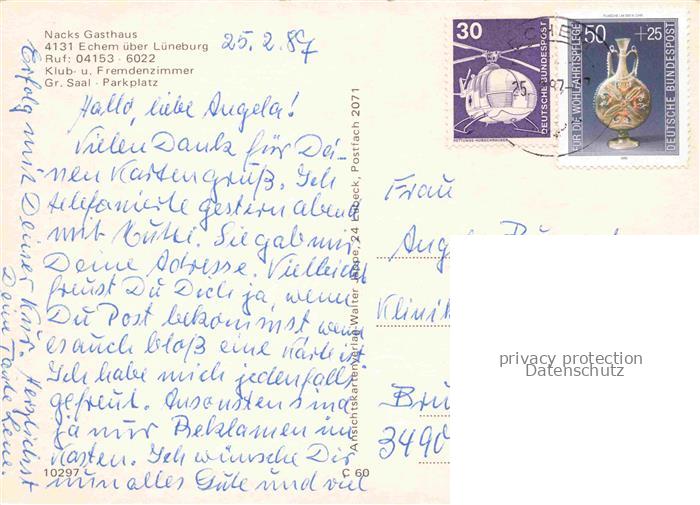 Nacks Gasthaus
4131 Echem über Lüneburg
Ruf: 04153 - 6022
Klub- u. Fremdenzimmer
Gr. Saal · Parkplatz
25.2.87
Hallo, liebe Angela!
Vielen Dank für Dei-
nen Kartengruß. Ich
telefonierte gestern abend
mit Mutti. Sie gab mir
Deine Adresse. Vielleicht
freust Du Dich ja, wenn
Du Post bekommst wenn
es auch bloß eine Karte ist.
Ich habe mich jedenfalls
gefreut. Ansonsten sind
ja nur Reklamen im
Kasten. Ich wünsche Dir
nun alles Gute und viel
Erfolg mit Deiner Kur. Herzlichst
Deine Tante Lene.
10297
C 60
Ansichtskartenverlag Walter Jappe, 24 Lübeck, Postfach 2071
30
DEUTSCHE BUNDESPOST
RETTUNGS-HUBSCHRAUBER
50 +25
FÜR DIE WOHLFAHRTSPFLEGE
DEUTSCHE BUNDESPOST
Frau
Klinik
3490
privacy protection
Datenschutz